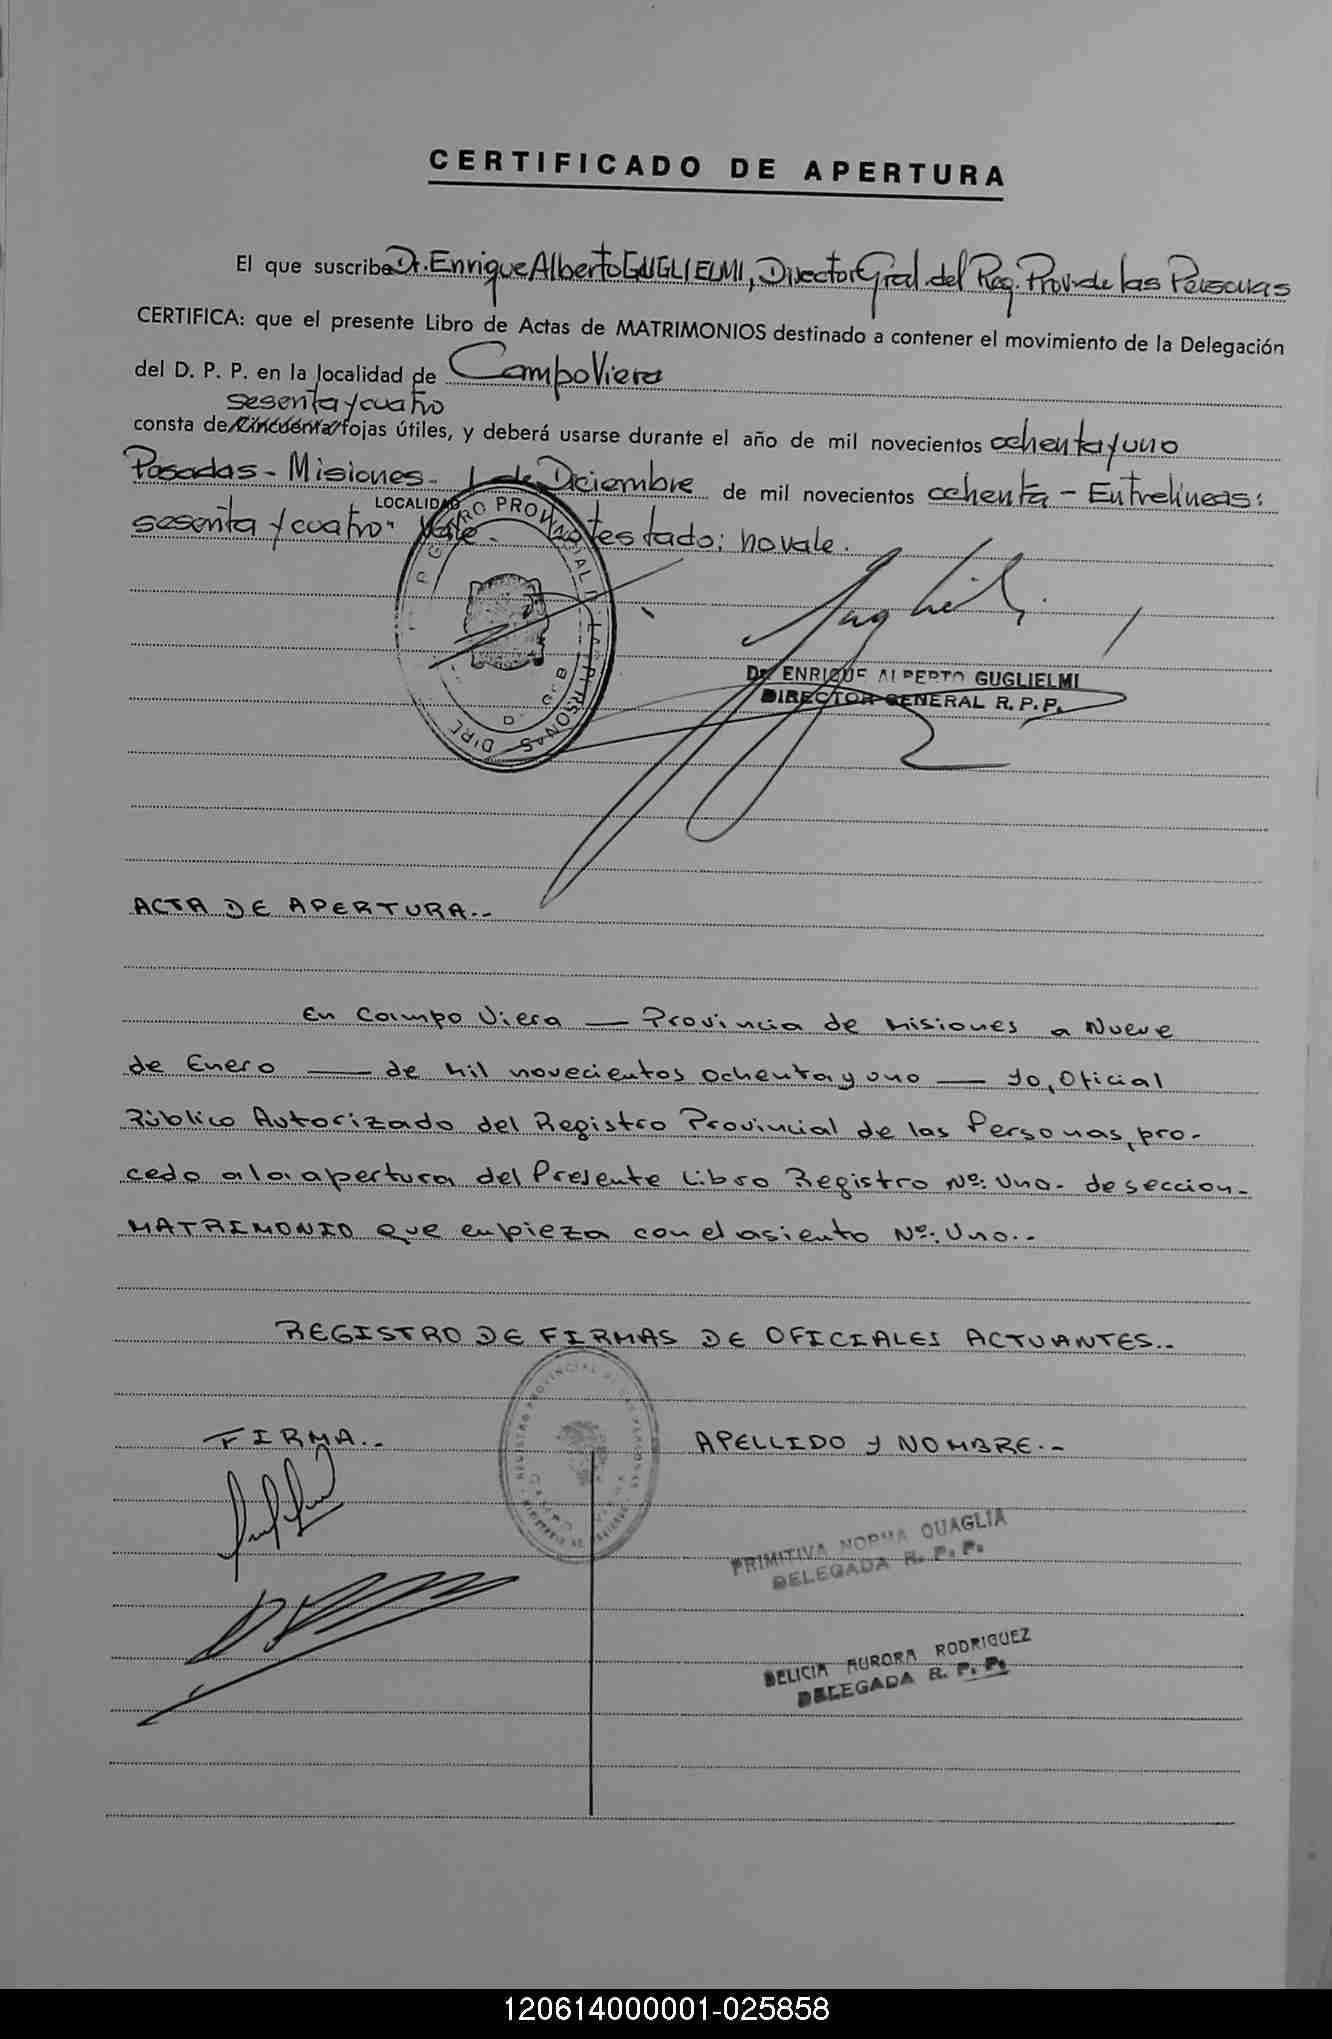 CERTIFICADO DE APERTURA
El que suscribe Dr. Enrique Alberto GUGLIELMI, Director Gral. del Reg. Prov. de las Personas
CERTIFICA: que el presente Libro de Actas de MATRIMONIOS destinado a contener el movimiento de la Delegación
del D. P. P. en la localidad de Campo Viera
sesenta y cuatro
consta de cincuenta fojas útiles, y deberá usarse durante el año de mil novecientos ochenta y uno
Posadas - Misiones - 1 de Diciembre de mil novecientos ochenta - Entrelíneas:
LOCALIDAD
sesenta y cuatro" Vale. testado: no vale.
Dr. ENRIQUE ALBERTO GUGLIELMI
DIRECTOR GENERAL R. P. P.
ACTA DE APERTURA.-
En Campo Viera — Provincia de Misiones a Nueve
de Enero — de mil novecientos ochenta y uno — yo, Oficial
Público Autorizado del Registro Provincial de las Personas, pro-
cedo a la apertura del Presente Libro Registro Nº: Uno.- de seccion-
MATRIMONIO que empieza con el asiento Nº: Uno.-
REGISTRO DE FIRMAS DE OFICIALES ACTUANTES.-
FIRMA.- APELLIDO y NOMBRE.-
PRIMITIVA NORMA QUAGLIA
DELEGADA R. P. P.
DELICIA AURORA RODRIGUEZ
DELEGADA R. P. P.
120614000001-025858